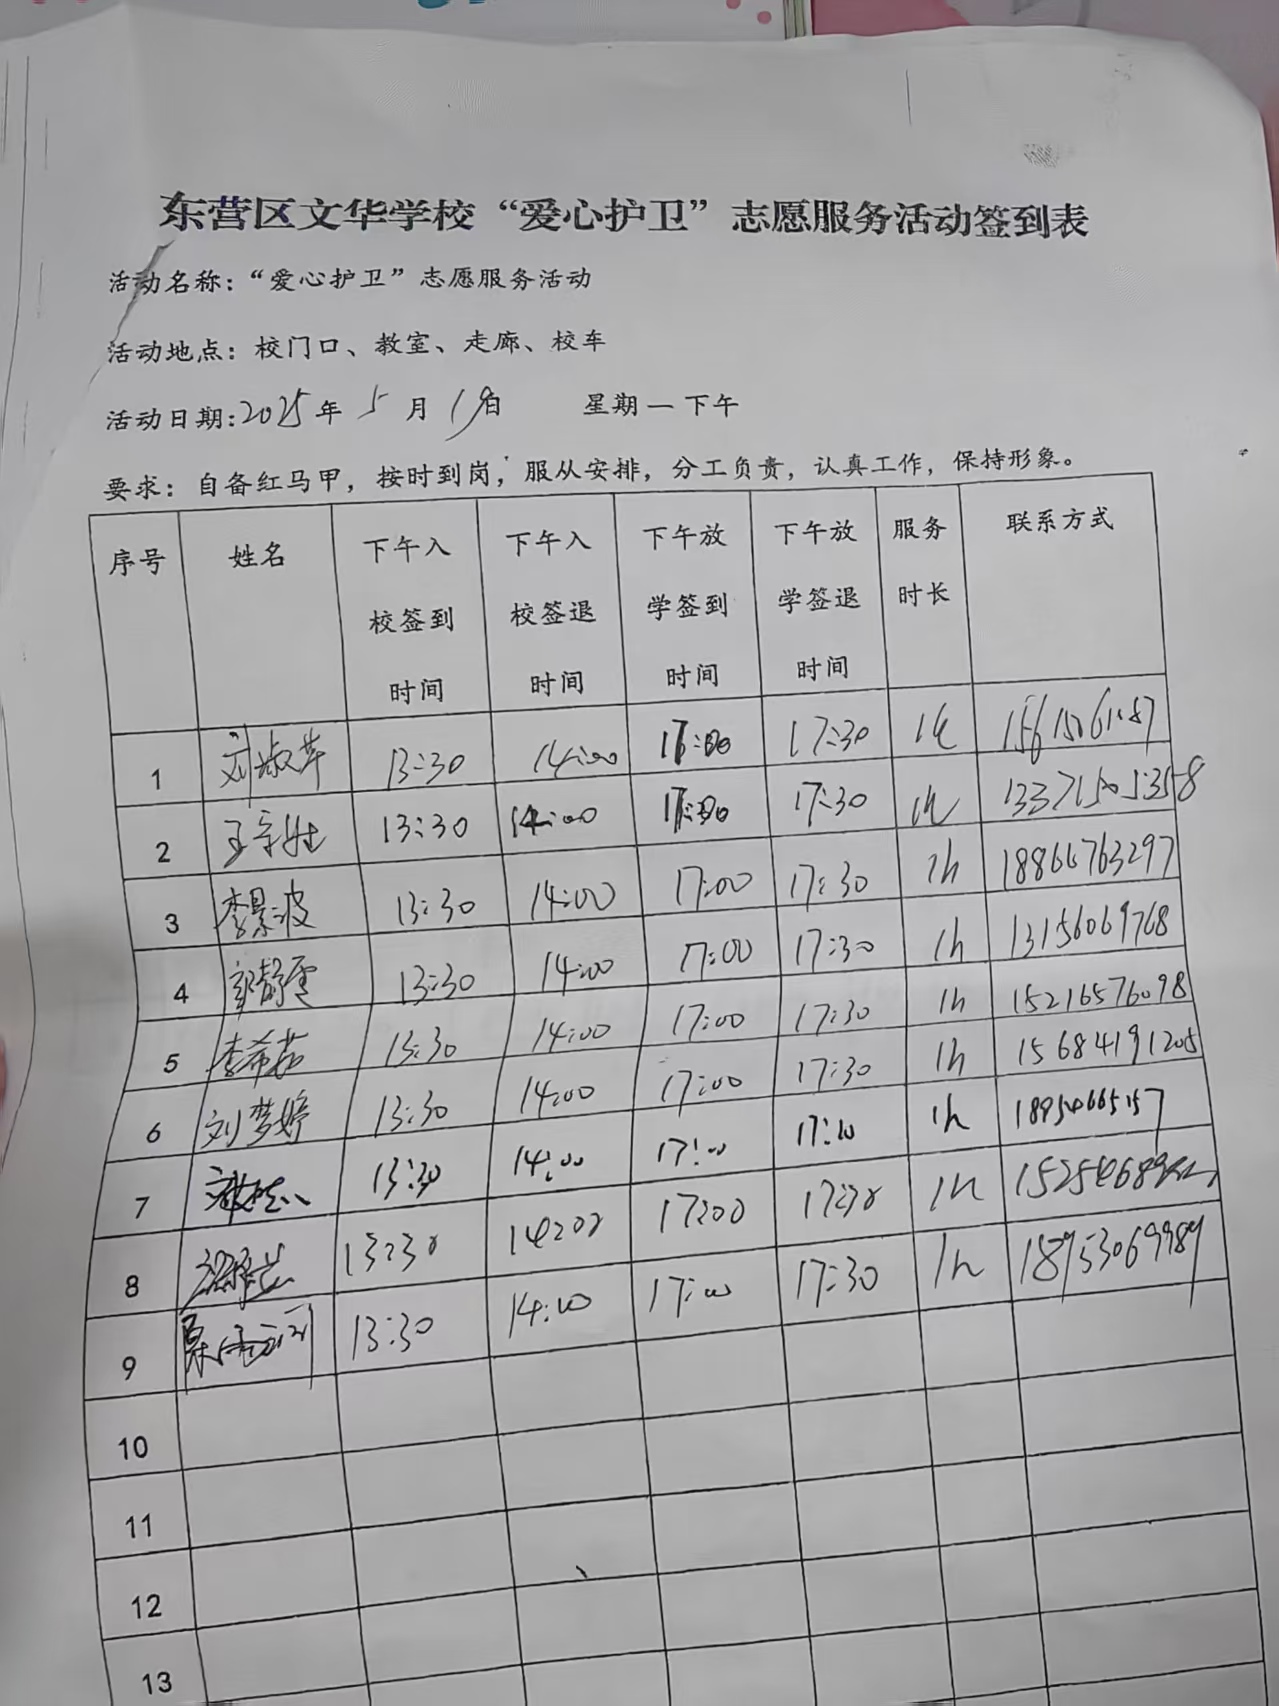 东营区文华学校“爱心护卫”志愿服务活动签到表
活动名称:“爱心护卫”志愿服务活动
活动地点:校门口、教室、走廊、校车
活动日期:2025年 5 月 19日 星期一下午
要求:自备红马甲,按时到岗,服从安排,分工负责,认真工作,保持形象。
序号 姓名 下午入校签到时间 下午入校签退时间 下午放学签到时间 下午放学签退时间 服务时长 联系方式
1 刘淑苹 13:30 14:00 17:00 17:30 1h
2 13:30 14:00 17:00 17:30 1h 13371505358
3 李景波 13:30 14:00 17:00 17:30 1h 18866763297
4 郭静雪 13:30 14:00 17:00 17:30 1h 13156069768
5 李希茹 13:30 14:00 17:00 17:30 1h 15216576098
6 刘梦婷 13:30 14:00 17:00 17:30 1h 15684191205
7 13:30 14:00 17:00 1h
8 13:30 14:00 17:00 17:30 1h
9 13:30 14:00 17:00 17:30 1h 18953069989
10
11
12
13